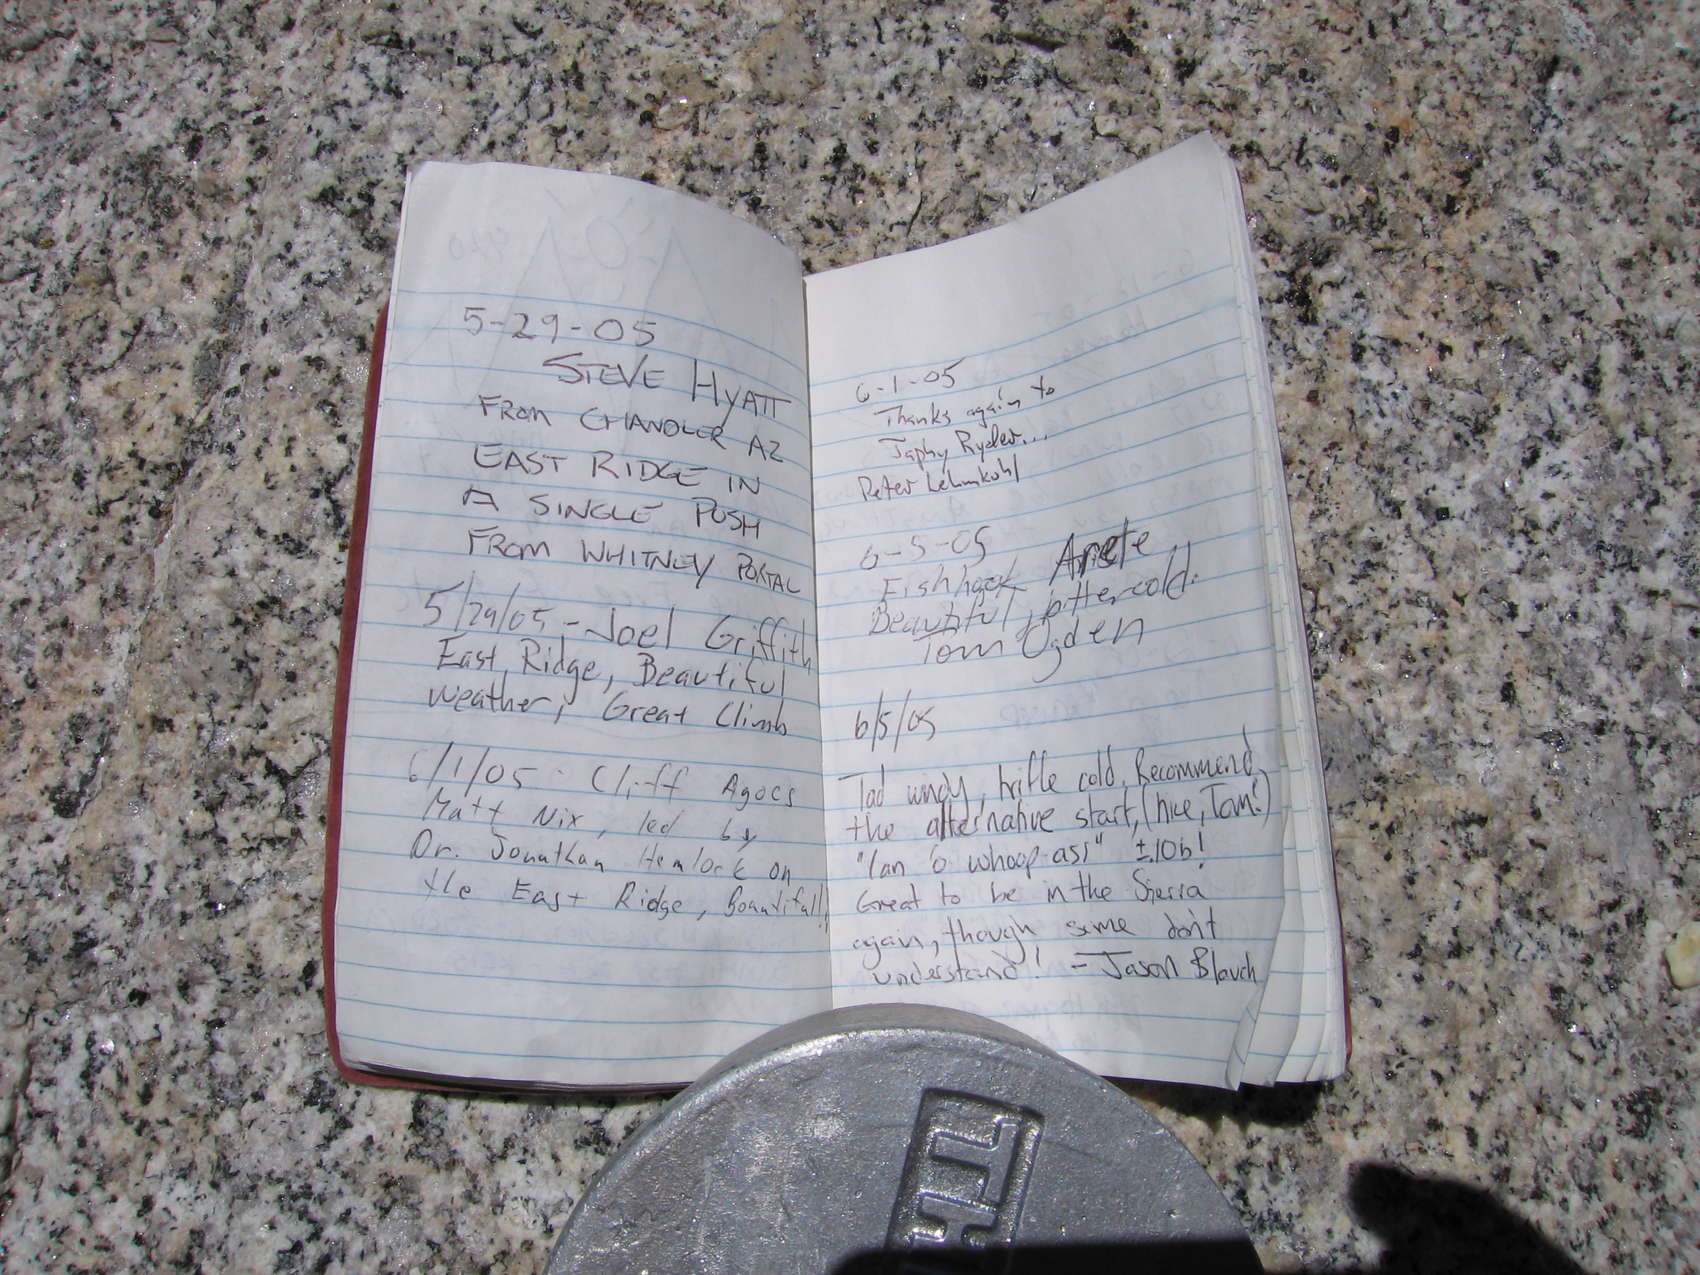 5-29-05
STEVE HYATT
FROM CHANDLER AZ
EAST RIDGE IN
A SINGLE PUSH
FROM WHITNEY PORTAL
5/29/05 - Joel Griffith
East Ridge, Beautiful
weather, Great Climb
6/1/05 - Cliff Agocs
Matt Nix, led by
Dr. Jonathan Hemlock on
the East Ridge, Boautiful!
6-1-05
Thanks again to
Japhy Ryder...
Peter Lehmkuhl
6-5-05
Fishhook Arete
Beautiful, bitter cold.
Tom Ogden
6/5/05
Tad windy, trifle cold. Recommend
the alternative start, (nice, Tom!)
"Can 'o whoop-ass" ±10b!
Great to be in the Sierra
again, though some don't
understand! - Jason Blauch